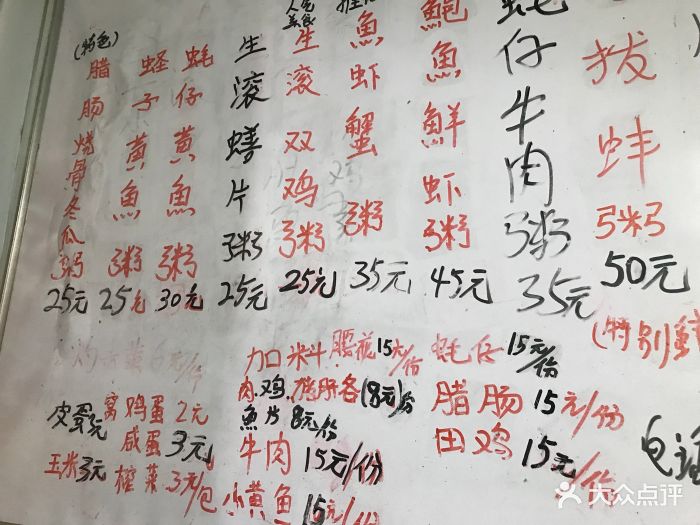 (特色)
腊肠烧骨冬瓜粥
25元
蛏子黄魚粥
25元
蚝仔黄魚粥
30元
生滚鳝片粥
25元
美食
生滚双鸡粥
25元
魚虾蟹粥
35元
鲍魚鮮虾粥
45元
蚝仔牛肉粥
35元
拔蚌粥
50元
(特别
加口料
腰花15元/份
肉.鸡.
各(8元)份
魚片8元/份
牛肉15元/份
小黄鱼15元/份
蚝仔15元/份
腊肠15元/份
田鸡15元/份
皮蛋
窝鸡蛋2元
咸蛋3元
玉米3元
榨菜3元/包
大众点评